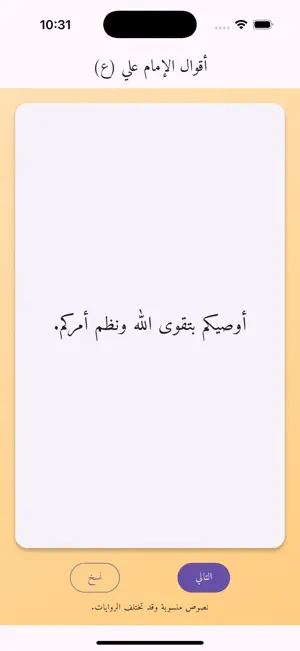 10:31
أقوال الإمام علي (ع)
أوصيكم بتقوى الله ونظم أمركم.
التالي
نسخ
نصوص منسوبة وقد تختلف الروايات.